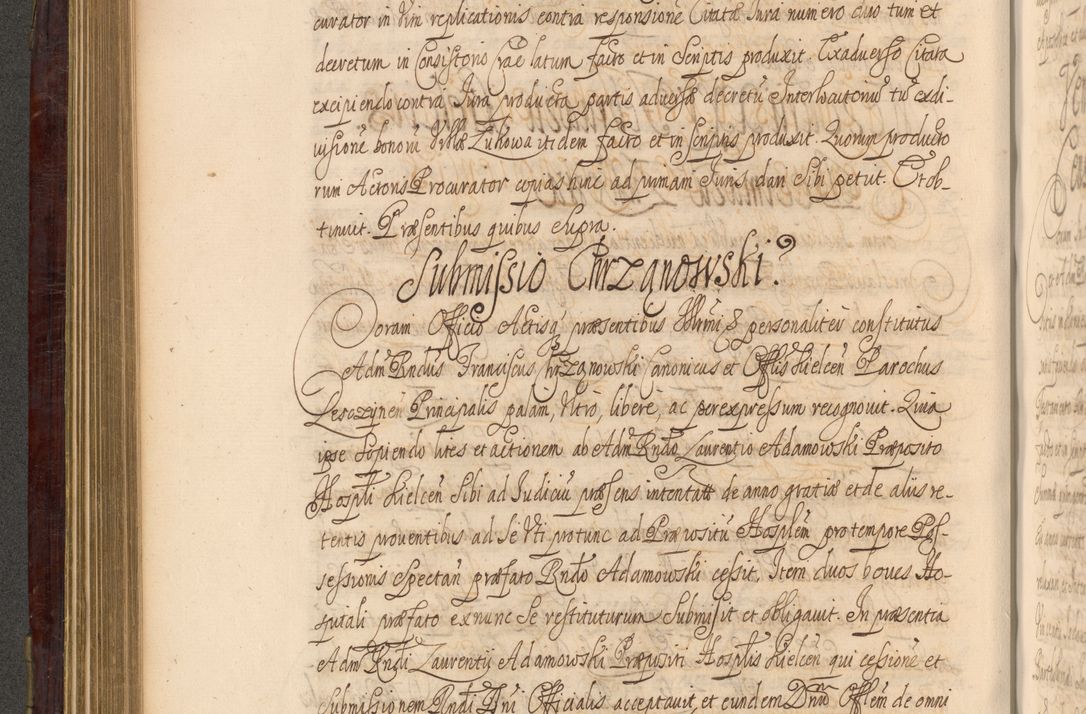 curator in vim replicationis contra responsione Citatæ Iura numero duo tum et
decretum in Consistorio Crac latum facto et in Scriptis produxit. Exaduerso Citata
excipiendo contra Iura producta partis aduersæ decretũ Interlocutoriũ tũ exdi-
uisione bonorũ Villæ Zukowa itidem facto et in Scriptis produxit. Quorum producto
rum Actoris Procurator copias hinc ad primam Iuris dari sibi petit. Et ob-
tinuit. Præsentibus quibus supra.
Submissio Chrzanowski.
Coram Officio Actisq præsentibus personaliter constitutus
Adm Rndus Franciscus Chrzanowski Canonicus et Offlis Kielcen Parochus
Leszczynen Principalis palam, Vtro, libere, ac per expressum recognouit. Quia
ipse Sopiendo lites et actionem ab Adm Rndo Laurentio Adamowski Præposito
Hosplis Kielcen Sibi ad Iudiciũ præsens intentatã de anno gratiæ et de aliis re-
tentis prouentibus ad Se Vti protunc ad Præpositũ Hosplem pro tempore Pos-
sessionis Spectan præfato Rndo Adamowski cessit. Item duos boues Ho-
spitali præfato exnunc Se restituturum Submisit et obligauit. In præsentia
Adm Rndi Laurentij Adamowski Præpositi Hosplis Kielcen qui cessione et
Submissionem Rndi Dni Officialis acceptauit, et eundem Dnum Offlem de omni